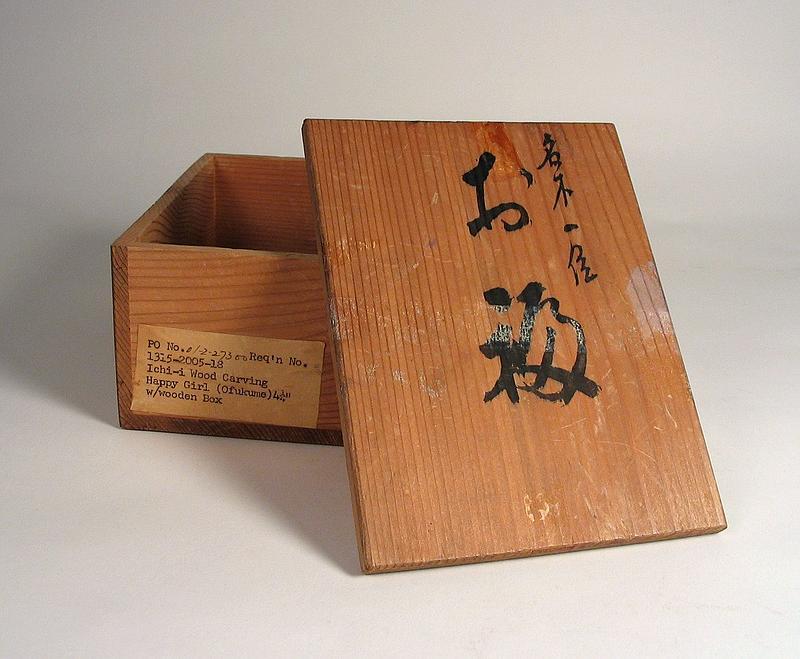 名木一位
お福
PO No.01-2-27300 Req'n No.
1315-2005-18
Ichi-i Wood Carving
Happy Girl (Ofukume)4¼"
w/wooden Box